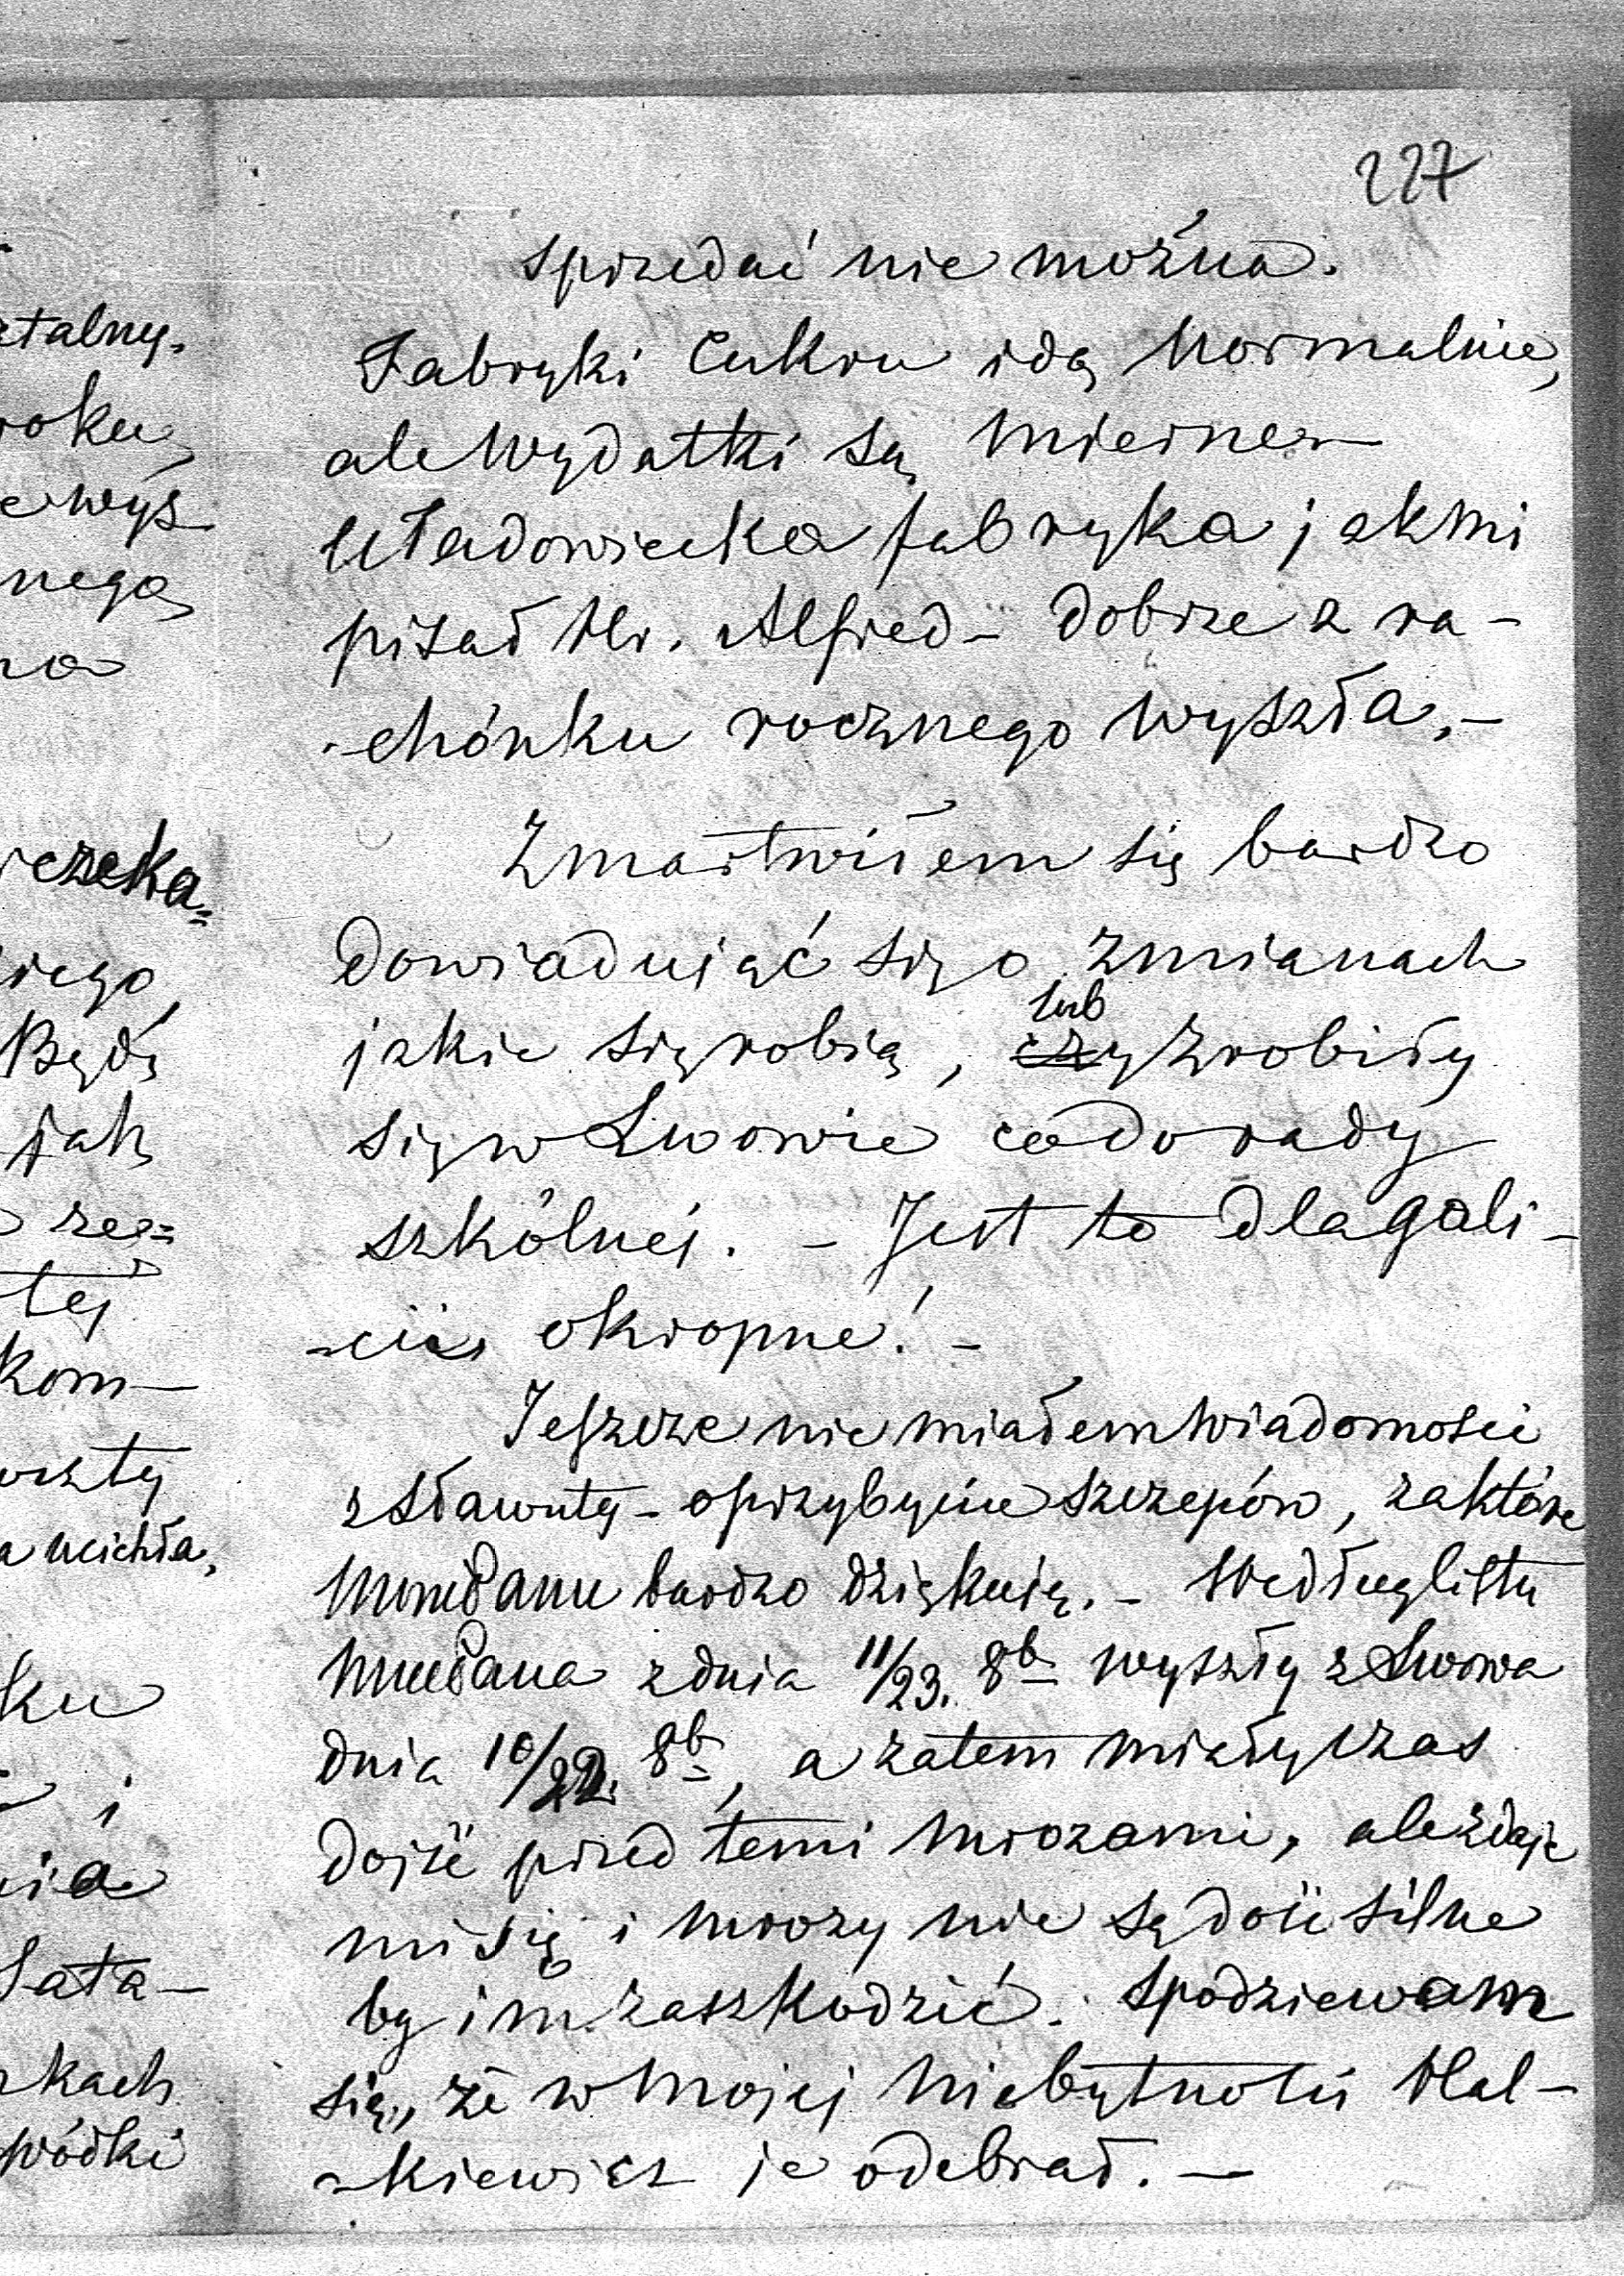 227
sprzedać nie można.
Fabryki Cukru idą normalnie,
ale wydatki są mierne –
Uładowiecka fabryka jak mi
pisał Hr. Alfred – dobrze z ra-
-chónku rocznego wyszła. –
Zmartwiłem się bardzo
dowiadując się o zmianach
jakie się robią, czy lub zrobiły
się w Lwowie co do rady
szkólnéj. – Jest to dla gali-
-cii okropne! –
Jeszcze nie miałem wiadomości
z Sławuty – o przybyciu szczepów, za które
Panu bardzo dziękuię. – Według listu
Pana z dnia 11/23. 8b wyszły z Lwowa
dnia 10/22. 8b, a zatem miały czas
dojść przed temi mrozami, ale zdaje
mi się i mrozy nie są dość silne
by im zaszkodzić. Spodziewam
się, że w mojej niebytności Hal-
-kiewicz je odebrał. –
ztalny.
roku,
wys
nego,
czeka=
iego
Będę
jak
tej
kom–
ucichła,
ku
i
nia
kach
wódki